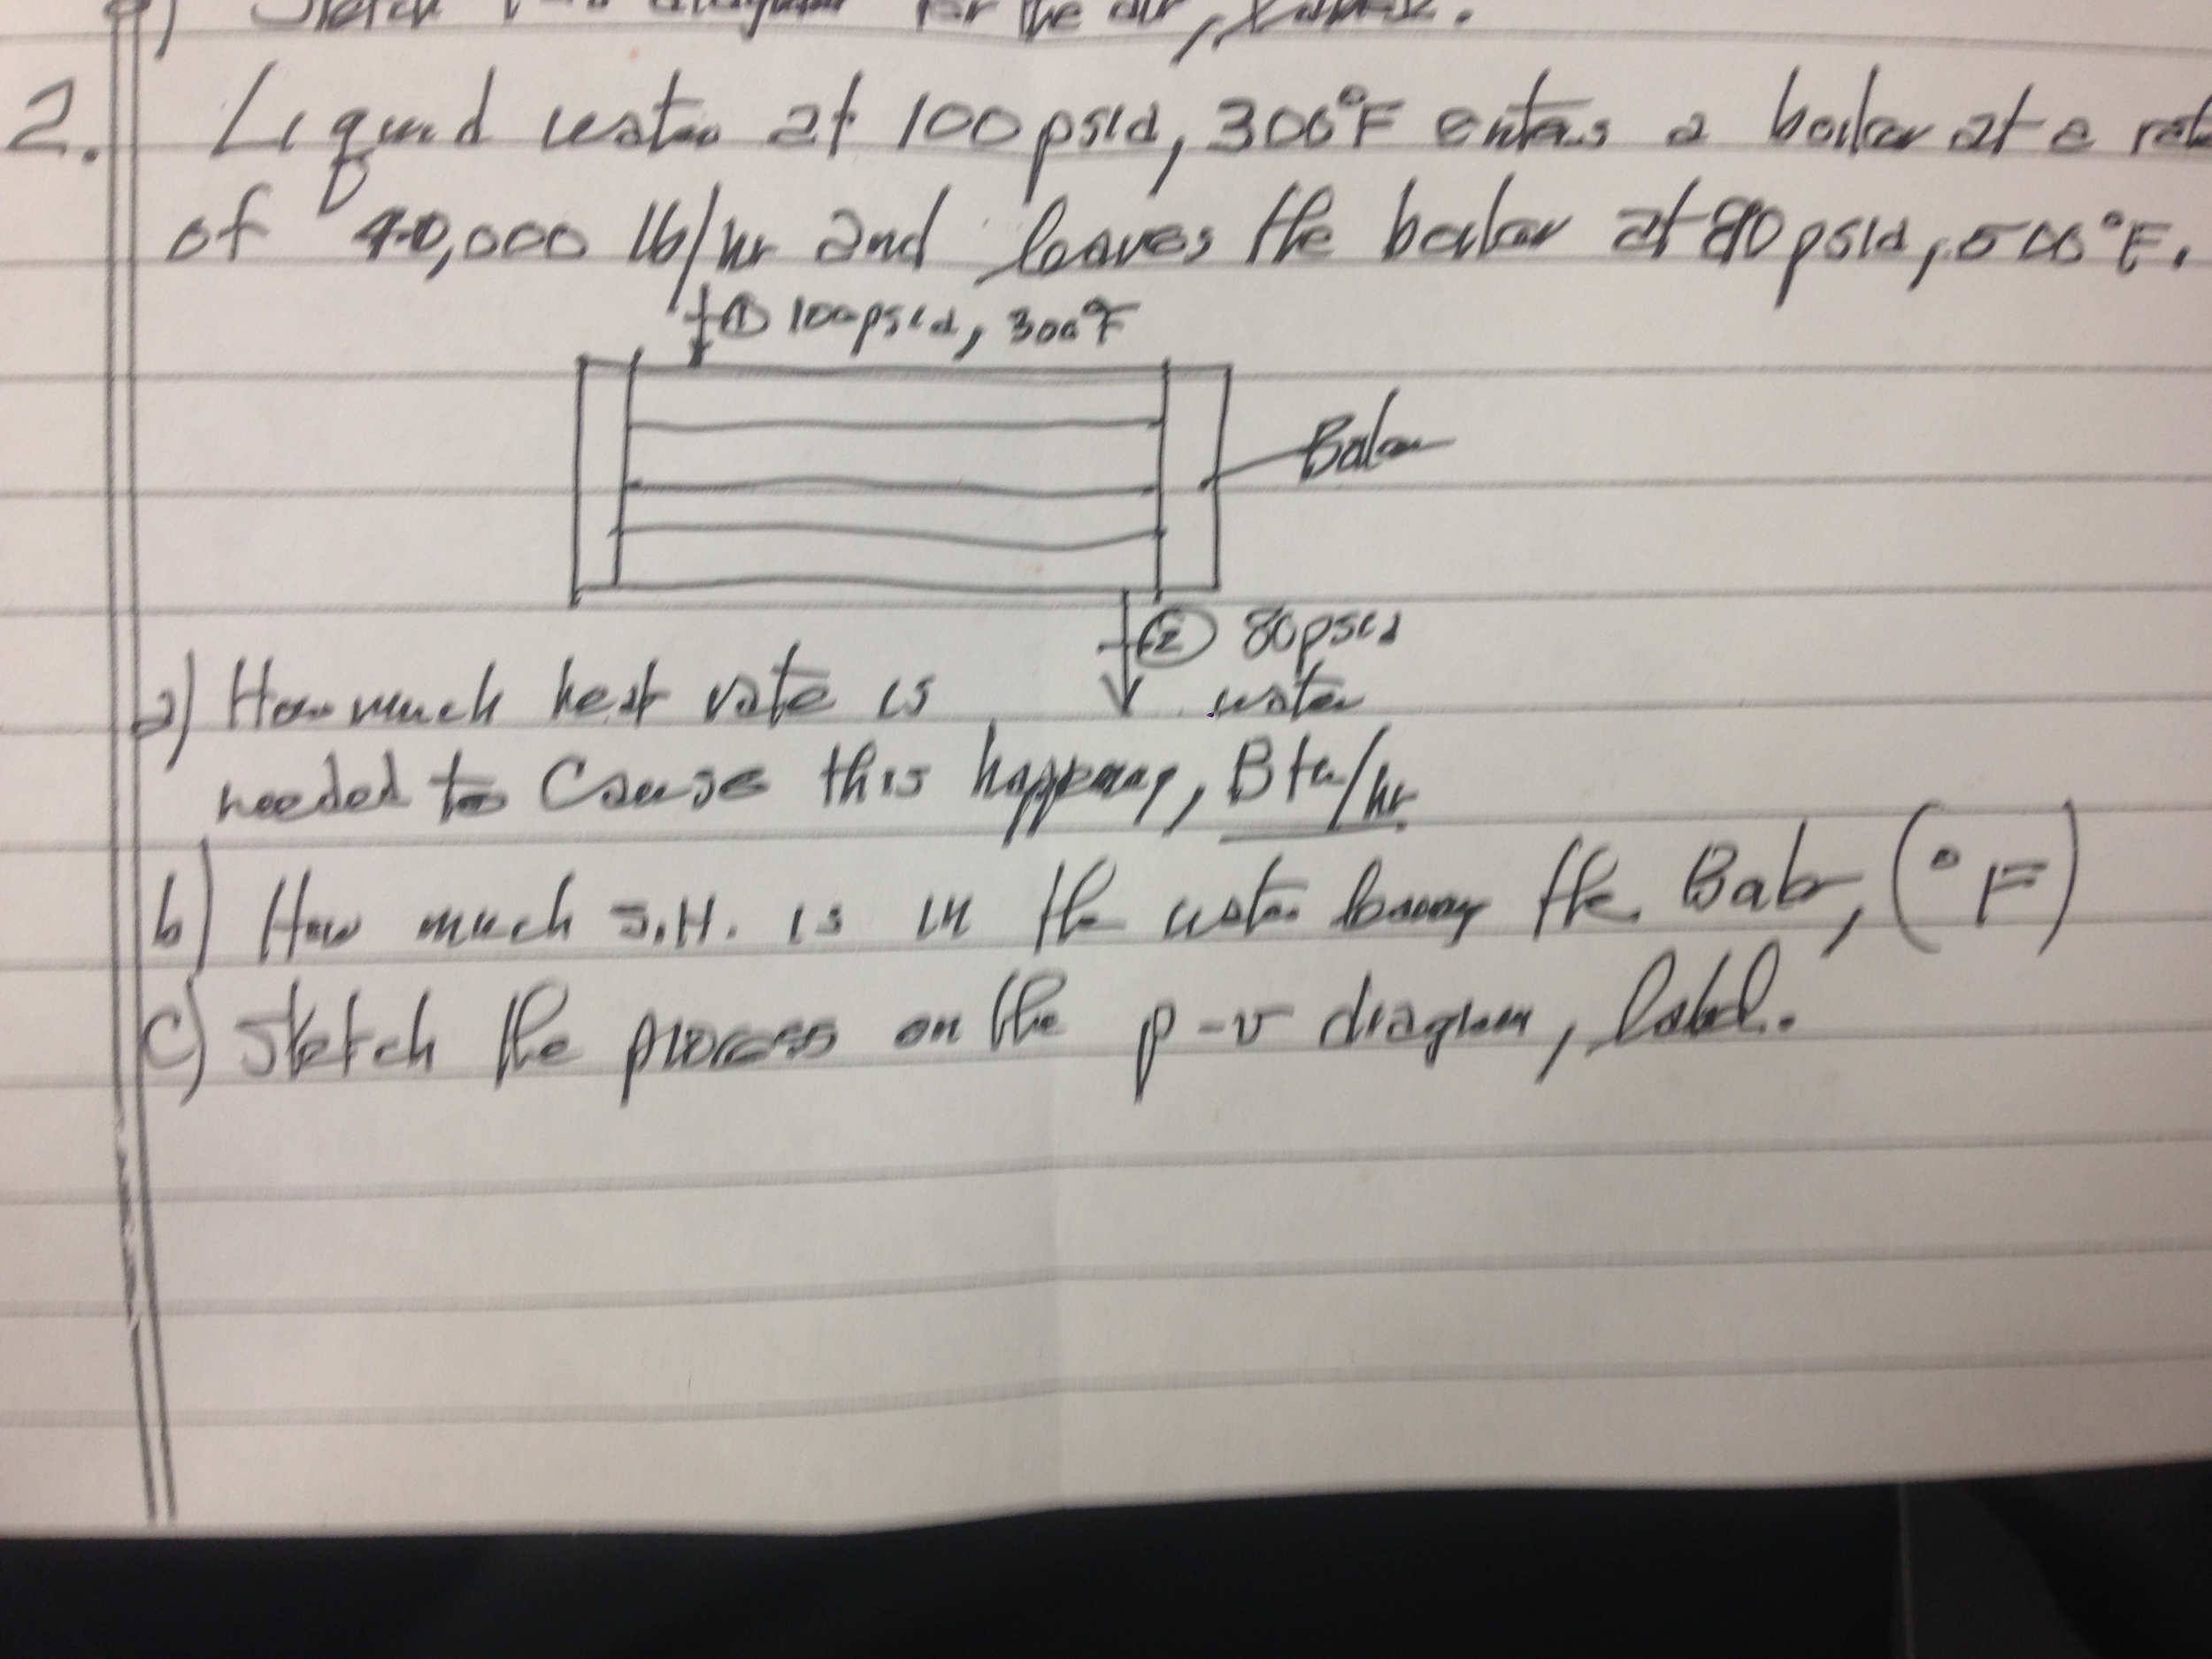 Sketch diagram for the air, label.
2. Liquid water at 100 psia, 300°F enters a boiler at a rate
of 40,000 lb/hr and leaves the boiler at 80 psia, 500°F.
① 100 psia, 300°F
Boiler
② 80 psia
a) How much heat rate is water
needed to cause this happening, Btu/hr.
b) How much S.H. is in the water leaving the Boiler, (°F)
c) Sketch the process on the p-v diagram, label.